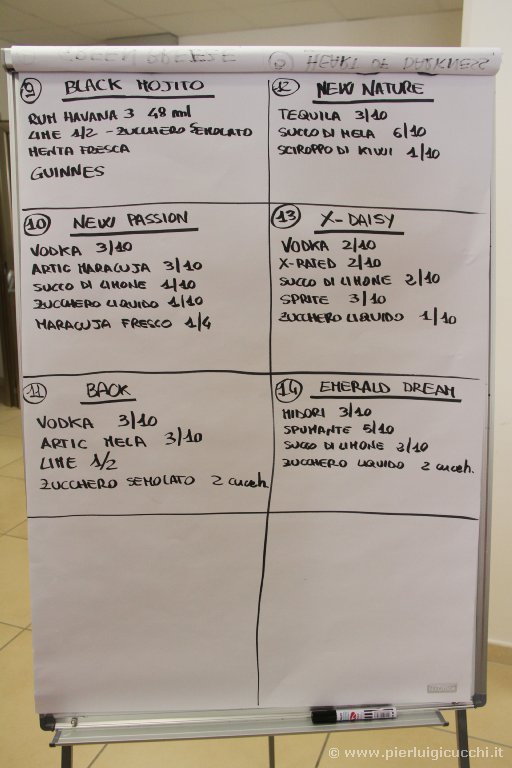 GREEN GREESE
HEART OF DARKNESS
9 BLACK MOJITO
RUM HAVANA 3 48 ml
LIME 1/2 - ZUCCHERO SEMOLATO
MENTA FRESCA
GUINNES
10 NEW PASSION
VODKA 3/10
ARTIC MARACUJA 3/10
SUCCO DI LIMONE 1/10
ZUCCHERO LIQUIDO 1/10
MARACUJA FRESCO 1/4
11 BACK
VODKA 3/10
ARTIC MELA 3/10
LIME 1/2
ZUCCHERO SEMOLATO 2 cucch.
12 NEW NATURE
TEQUILA 3/10
SUCCO DI MELA 6/10
SCIROPPO DI KIWI 1/10
13 X-DAISY
VODKA 2/10
X-RATED 2/10
SUCCO DI LIMONE 2/10
SPRITE 3/10
ZUCCHERO LIQUIDO 1/10
14 EMERALD DREAM
MIDORI 3/10
SPUMANTE 5/10
SUCCO DI LIMONE 2/10
ZUCCHERO LIQUIDO 2 cucch.
© www.pierluigicucchi.it